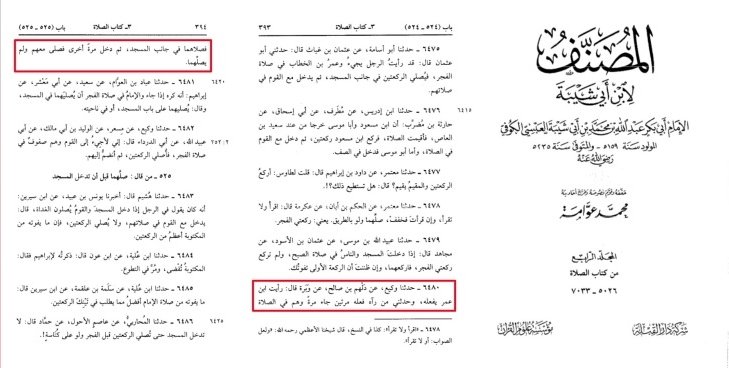 المصنف
لابن أبي شيبة
الإمام أبي بكر عبد الله بن محمد بن أبي شيبة العبسي الكوفي
المولود سنة ١٥٩هـ - والمتوفى سنة ٢٣٥هـ
رضي الله عنه
حققه وقوم نصوصه وخرج أحاديثه
محمد عوامة
المجلد الرابع
من كتاب الصلاة
٥٠٢٦ - ٧٠٣٣
شركة دار القبلة
مؤسسة علوم القرآن
باب (٥٢٤ - ٥٢٤)
٣ـ كتاب الصلاة
٣٩٣
٦٤٧٥ ـ حدثنا أبو أسامة، عن عثمان بن غياث قال: حدثني أبو
عثمان قال: قد رأيتُ الرجل يجيءُ وعمرُ بن الخطاب في صلاة
الفجر، فيُصلي الركعتين في جانب المسجد، ثم يدخل مع القوم في
صلاتهم.
٦٤١٥
٦٤٧٦ ـ حدثنا ابن إدريس، عن مُطرِّف، عن أبي إسحاق، عن
حارثة بن مُضرِّب: أن ابن مسعود وأبا موسى خرجا من عند سعيد بن
العاص، فأقيمت الصلاة، فركع ابن مسعود ركعتين، ثم دخل مع القوم
في الصلاة، وأما أبو موسى فدخل في الصف.
٦٤٧٧ ـ حدثنا معتمر، عن داود بن إبراهيم قال: قلت لطاوس: أركعُ
الركعتين والمقيمُ يقيم؟ قال: هل تستطيع ذلك؟!.
٦٤٧٨ ـ حدثنا معتمر، عن الحكم بن أبان، عن عكرمة قال: اقرأ ولا
تقرأ، وإن قرأتَ فخفّف، صلِّهما ولو بالطريق. يعني: ركعتي الفجر.
٦٤٧٩ ـ حدثنا عبيد الله بن موسى، عن عثمان بن الأسود، عن
مجاهد قال: إذا دخلتَ المسجد والناسُ في صلاة الصبح، ولم تركع
ركعتي الفجر، فاركعهما، وإن ظننتَ أن الركعة الأولى تفوتُك.
٦٤٨٠ ـ حدثنا وكيع، عن دَلْهم بن صالح، عن وَبَرة قال: رأيت ابن
عمر يفعله، وحدثني من رآه فعله مرتين جاء مرةً وهم في الصلاة
٦٤٧٨ ـ «اقرأ ولا تقرأ»: كذا في النسخ، قال شيخنا الأعظمي رحمه الله: «ولعل
الصواب: أو لا تقرأ».
باب (٥٢٥ - ٥٢٥)
٣ـ كتاب الصلاة
٣٩٤
فصلاهما في جانب المسجد، ثم دخل مرةً أخرى فصلى معهم ولم
يصلِّهما.
٦٤٢٠
٦٤٨١ ـ حدثنا عباد بن العوام، عن سعيد، عن أبي مَعْشر، عن
إبراهيم: أنه كره إذا جاء والإمام في صلاة الفجر أن يُصلّيَهما في المسجد،
وقال: يُصليهما على باب المسجد، أو في ناحيته.
٦٤٨٢ ـ حدثنا وكيع، عن مِسعر، عن الوليد بن أبي مالك، عن أبي
عبيد الله، عن أبي الدرداء قال: إني لأجيءُ إلى القوم وهم صفوفٌ في
صلاة الفجر، فأصلي الركعتين، ثم أنضمُّ إليهم.
٥٢٥ ـ من قال: صلِّهما قبل أن تدخل المسجد
٦٤٨٣ ـ حدثنا هُشيم قال: أخبرنا يونس بن عبيد، عن ابن سيرين:
أنه كان يقول في الرجل إذا دخل المسجد والقومُ يُصلون الغداة، قال:
يدخل مع القوم في صلاتهم، ولا يُصلي الركعتين، فإن ما يفوته من
المكتوبة أعظمُ من الركعتين.
٦٤٨٤ ـ حدثنا ابن علية، عن ابن عون قال: ذكرتُه لإبراهيم فقال:
المكتوبة تُقضى، ومرَّ في التطوع.
٦٤٨٥ ـ حدثنا ابن علية، عن سلمة بن علقمة، عن ابن سيرين قال:
ما يفوته من صلاة الإمام أفضلُ مما يطلب في تَيْنِك الركعتين.
٦٤٨٦ ـ حدثنا المُحاربي، عن عاصم الأحول، عن حماد قال:
لا تدخل المسجد حتى تُصلي الركعتين قبل الفجر ولو على كُناسةٍ!.